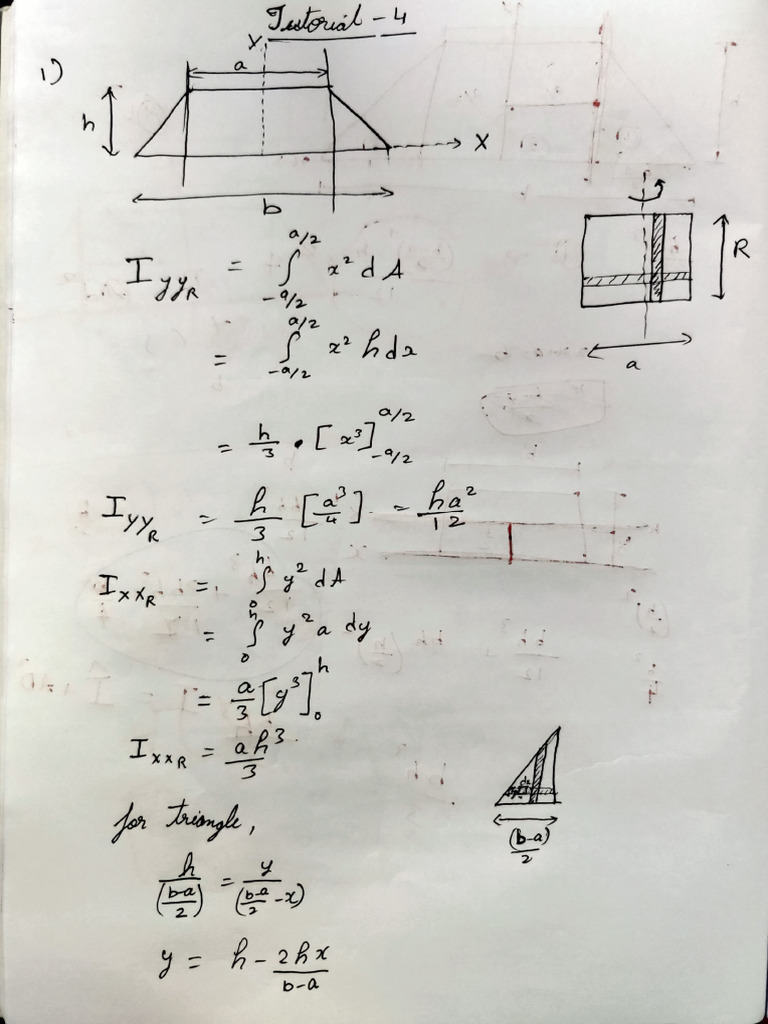 Tutorial - 4
1)
Y
a
h
X
b
R
a
I_yy_R = ∫_{-a/2}^{a/2} x² dA
= ∫_{-a/2}^{a/2} x² h dx
= h/3 · [x³]_{-a/2}^{a/2}
I_YY_R = h/3 [a³/4] = ha²/12
I_xx_R = ∫_0^h y² dA
= ∫_0^h y² a dy
= a/3 [y³]_0^h
I_xx_R = ah³/3
for triangle,
dx
(b-a)/2
h/((b-a)/2) = y/((b-a)/2 - x)
y = h - 2hx/(b-a)